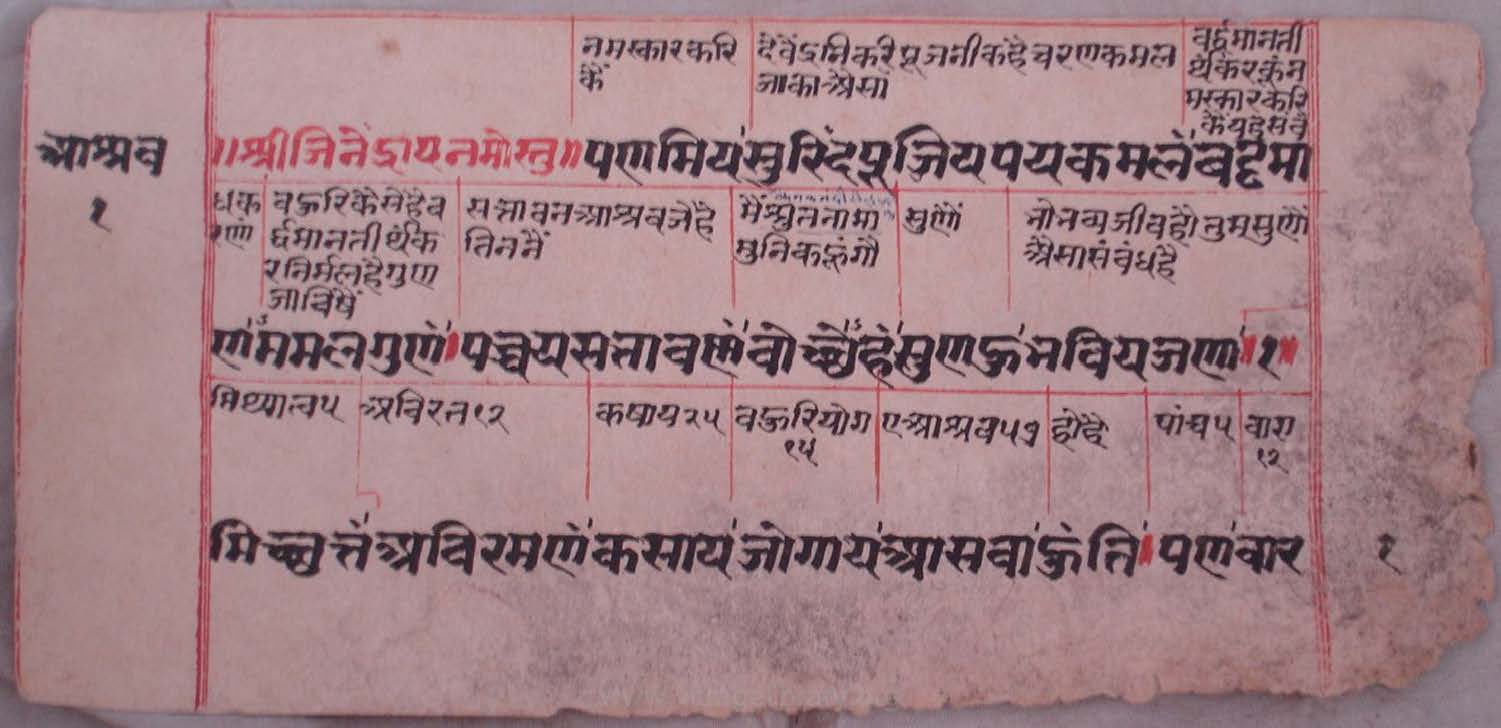 नमस्कारकरि
कैं
देवेंद्रनिकरि पूजनीक है चरणकमल
जाका ऐसा
वर्द्धमानती
र्थंकरकूं न
मस्कारकरि
आश्रव
१
॥श्रीजिनेंद्रायनमोस्तु॥ पणमिय सुरिंदपूजियपयकमलं वद्दमा
वहुरिकैसेहैव
र्द्धमानतीर्थंक
रनिर्मलहैगुण
जाविषैं
सत्तावनआश्रवजेहै
तिननैं
मैंश्रुतनामा
मुनिकहूंगौ
सुणौं
भोभव्यजीवहौतुमसुणौ
ऐसासंबंधहै
णंममलगुणं। पच्चयसत्तावणं वोच्छे हं सुणहु भवियजणा॥१॥
मिथ्यात्व५ अविरत१२ कषाय२५ वहुरियोग
१५
एआश्रव५७ होहै पांच५ वारा
१२
मिच्छत्तं अविरमणं कसाय जोगा य आसवा हुंति। पण वार
१